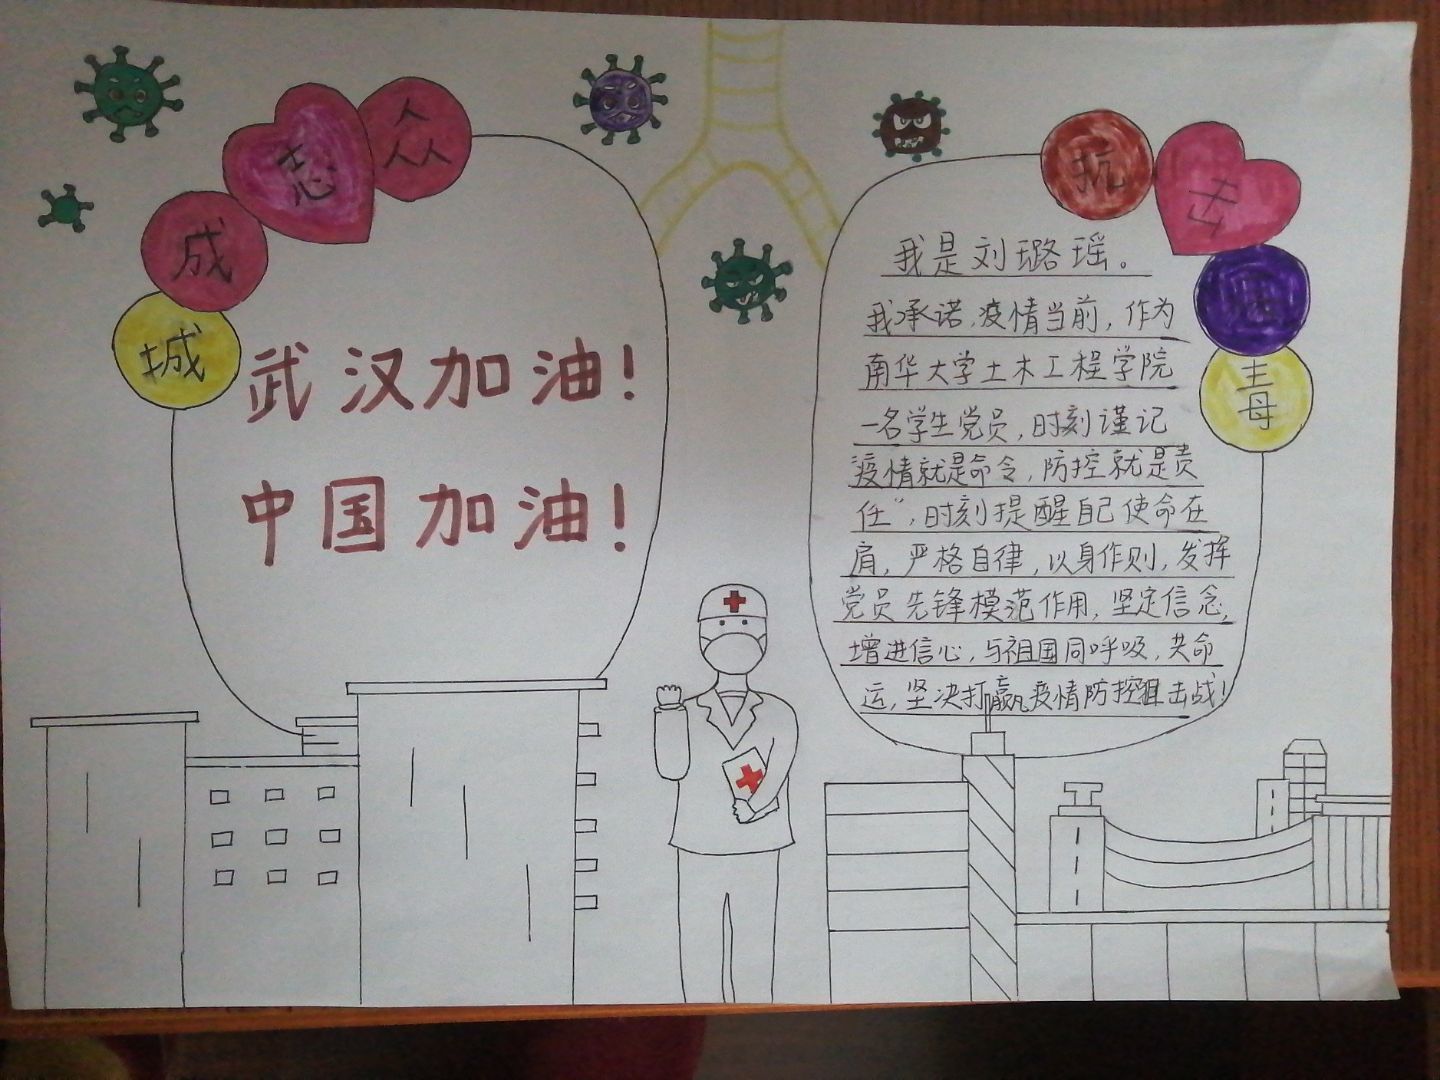 众志成城
武汉加油!
中国加油!
抗击毒
我是刘璐瑶。
我承诺,疫情当前,作为
南华大学土木工程学院
一名学生党员,时刻谨记
疫情就是命令,防控就是责
任”,时刻提醒自己使命在
肩,严格自律,以身作则,发挥
党员先锋模范作用,坚定信念,
增进信心,与祖国同呼吸,共命
运,坚决打赢疫情防控阻击战!